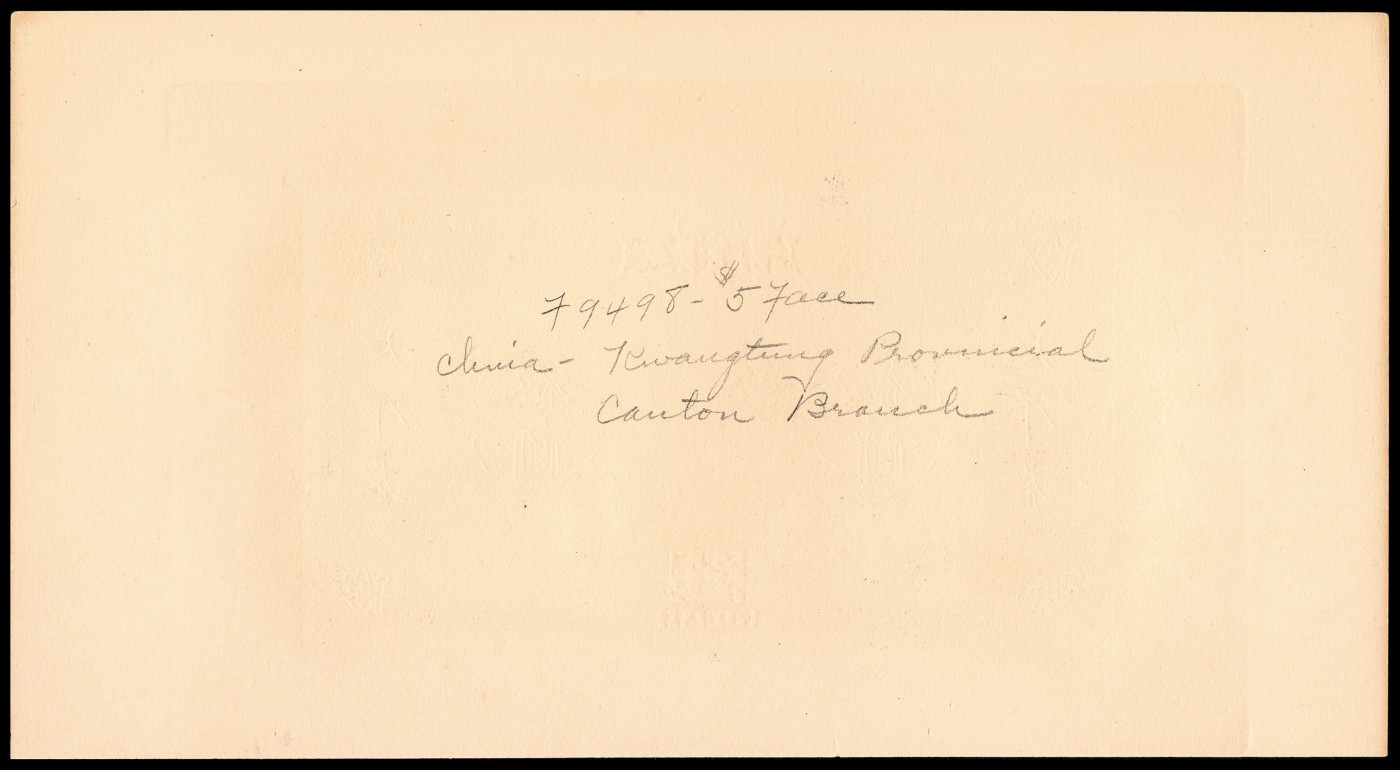 F9498- $5 Face
China- Kwangtung Provincial
Canton Branch